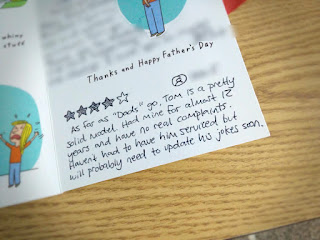 whiny
stuff
Thanks and Happy Father's Day
As far as "Dads" go, Tom is a pretty
solid model. Had mine for almost 12
years and have no real complaints.
Havent had to have him serviced but
will probably need to update his jokes soon.